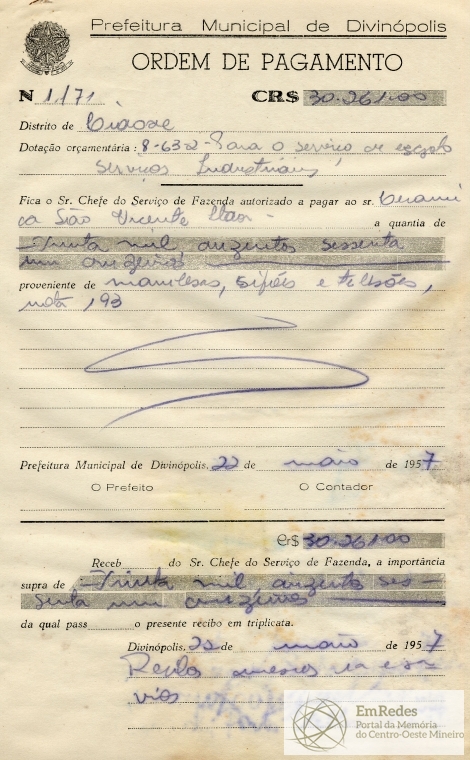 Prefeitura Municipal de Divinópolis
ORDEM DE PAGAMENTO
N 1.171 CR$ 30.261.00
Distrito de Cidade
Dotação orçamentária : 8-63-2 - Para o serviço de esgoto
Serviços Industriais
Fica o Sr. Chefe do Serviço de Fazenda autorizado a pagar ao sr. Cerami
ca São Vicente a quantia de
Trinta mil duzentos sessenta
um cruzeiros
proveniente de manilhas, sifões e
nota 193
Prefeitura Municipal de Divinópolis, 22 de maio de 1957
O Prefeito O Contador
Cr$ 30.261.00
Receb do Sr. Chefe do Serviço de Fazenda, a importância
supra de Trinta mil duzentos ses-
senta um cruzeiros
da qual pass o presente recibo em triplicata.
Divinópolis, 22 de maio de 1957
EmRedes
Portal da Memória
do Centro-Oeste Mineiro